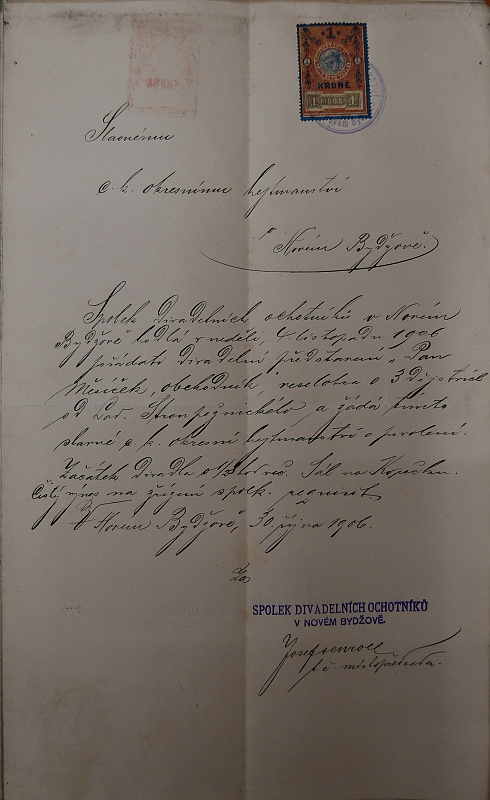 1
KRONE
1 1898 1
Slavnému
c. k. okresnímu hejtmanství
v Novém Bydžově.
Spolek divadelních ochotníků v Novém
Bydžově hodlá v neděli, 4. listopadu 1906
pořádati divadelní představení „Pan
Měsíček, obchodník", veselohra o 3 dějstvích
od Lad. Stroupežnického a žádá tímto
slavné c. k. okresní hejtmanství o povolení.
Začátek divadla o 1/2 8 hod. več. Sál na Kopečku.
Čistý výnos na zřízení spolk. rekvisit
V Novém Bydžově, 30 října 1906.
Za
SPOLEK DIVADELNÍCH OCHOTNÍKŮ
V NOVÉM BYDŽOVĚ.
Josef
t. č. místopředseda.